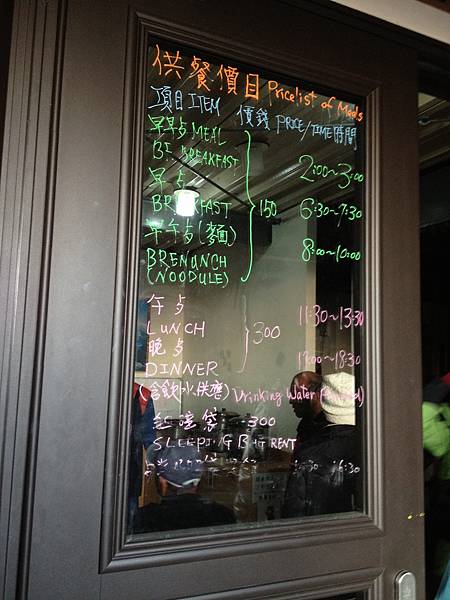 供餐價目 Pricelist of Meals
項目 ITEM 價錢 PRICE/TIME 時間
早早点 MEAL
BE. BREAKFAST 2:00~3:00
早点
BREAKFAST 150 6:30~7:30
早午点(麵)
BRENUNCH 8:00~10:00
(NOODULE)
午点 11:30~13:30
LUNCH 300
晚点
DINNER 17:00~18:30
(含飲水供應) Drinking Water
睡袋 300
SLEEPING BAG RENT